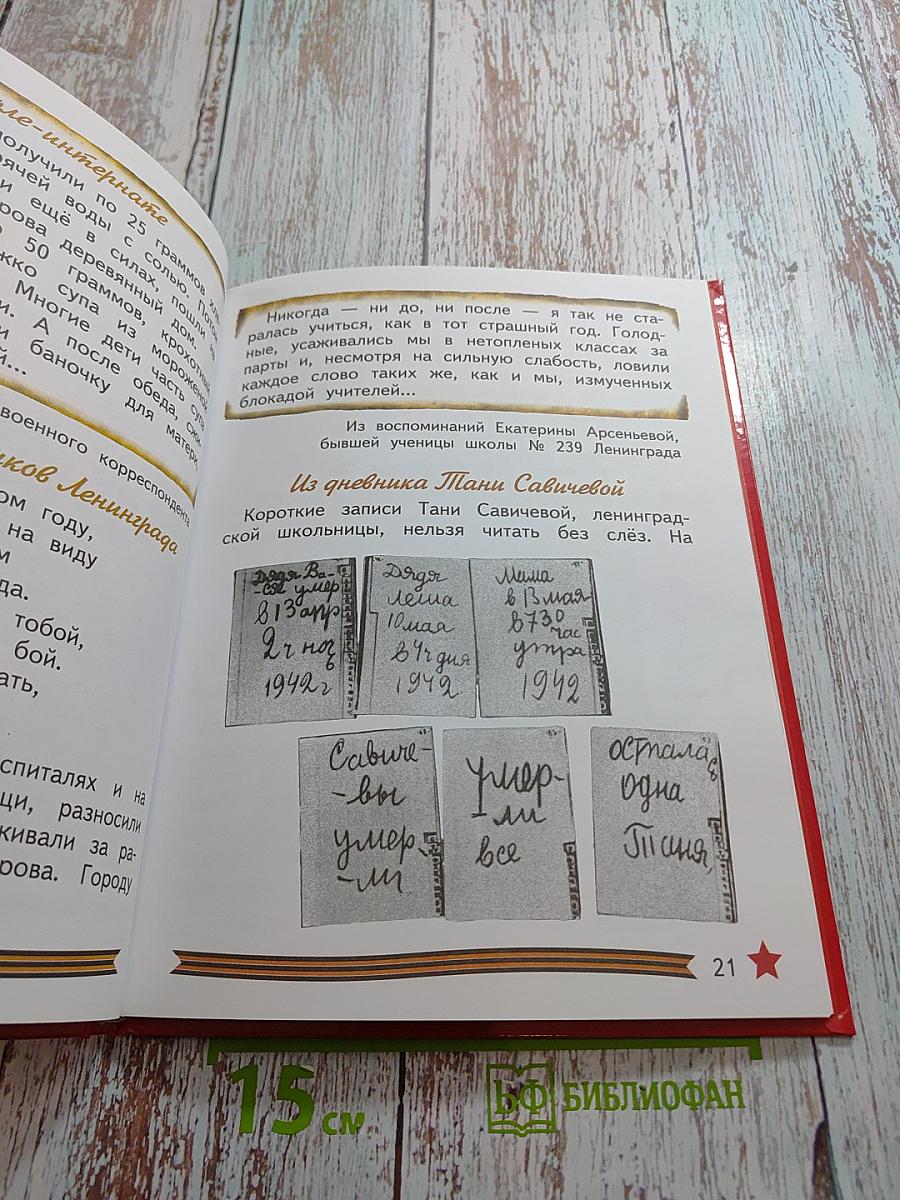 ле-интернате
получили по 25 граммов
рячей воды с солью. Пото
и ещё в силах, пошли
рова деревянный дом. В
о 50 граммов, крохотный
жко супа из мороженой
Многие дети часть супа
и. А после обеда,
и баночку для матери,
й...
военного корреспондента
иков Ленинграда
ом году,
на виду
м
да.
тобой,
бой.
ать,
спиталях и на
щи, разносили
живали за ра-
рова. Городу
Никогда — ни до, ни после — я так не ста-
ралась учиться, как в тот страшный год. Голод-
ные, усаживались мы в нетопленых классах за
парты и, несмотря на сильную слабость, ловили
каждое слово таких же, как и мы, измученных
блокадой учителей...
Из воспоминаний Екатерины Арсеньевой,
бывшей ученицы школы № 239 Ленинграда
Из дневника Тани Савичевой
Короткие записи Тани Савичевой, ленинград-
ской школьницы, нельзя читать без слёз. На
Дядя Ва-
-ся умер
в 13 апр
2 ч ноч
1942 г
Дядя
Леша
10 мая
в 4 ч дня
1942
Мама
в 13 мая
в 7 30
час
утра
1942
Савиче-
-вы
умер-
-ли
Умер-
ли
все
Осталас
одна
Таня
21
15 см
БФ БИБЛИОФАН